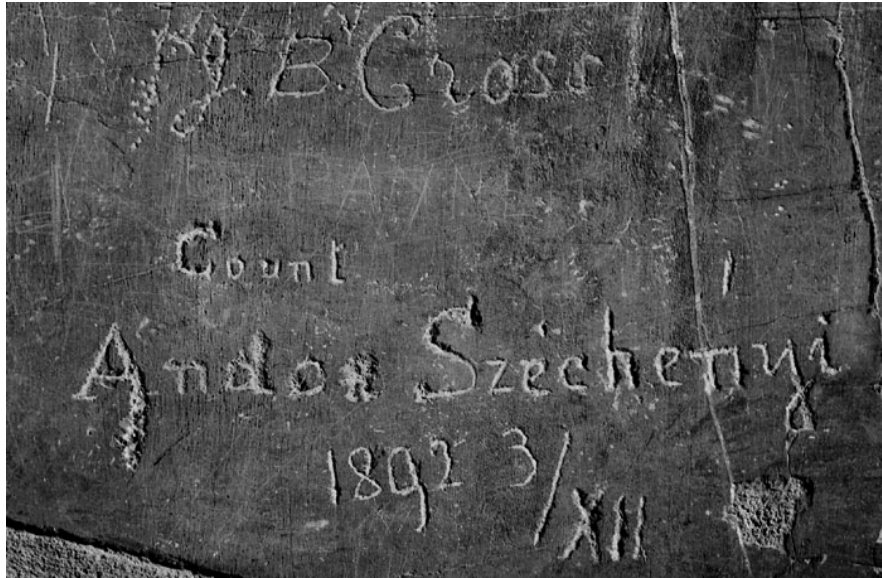 J. B. Cross
PAYNE
Count
Andor Széchenyi
1892 3/XII